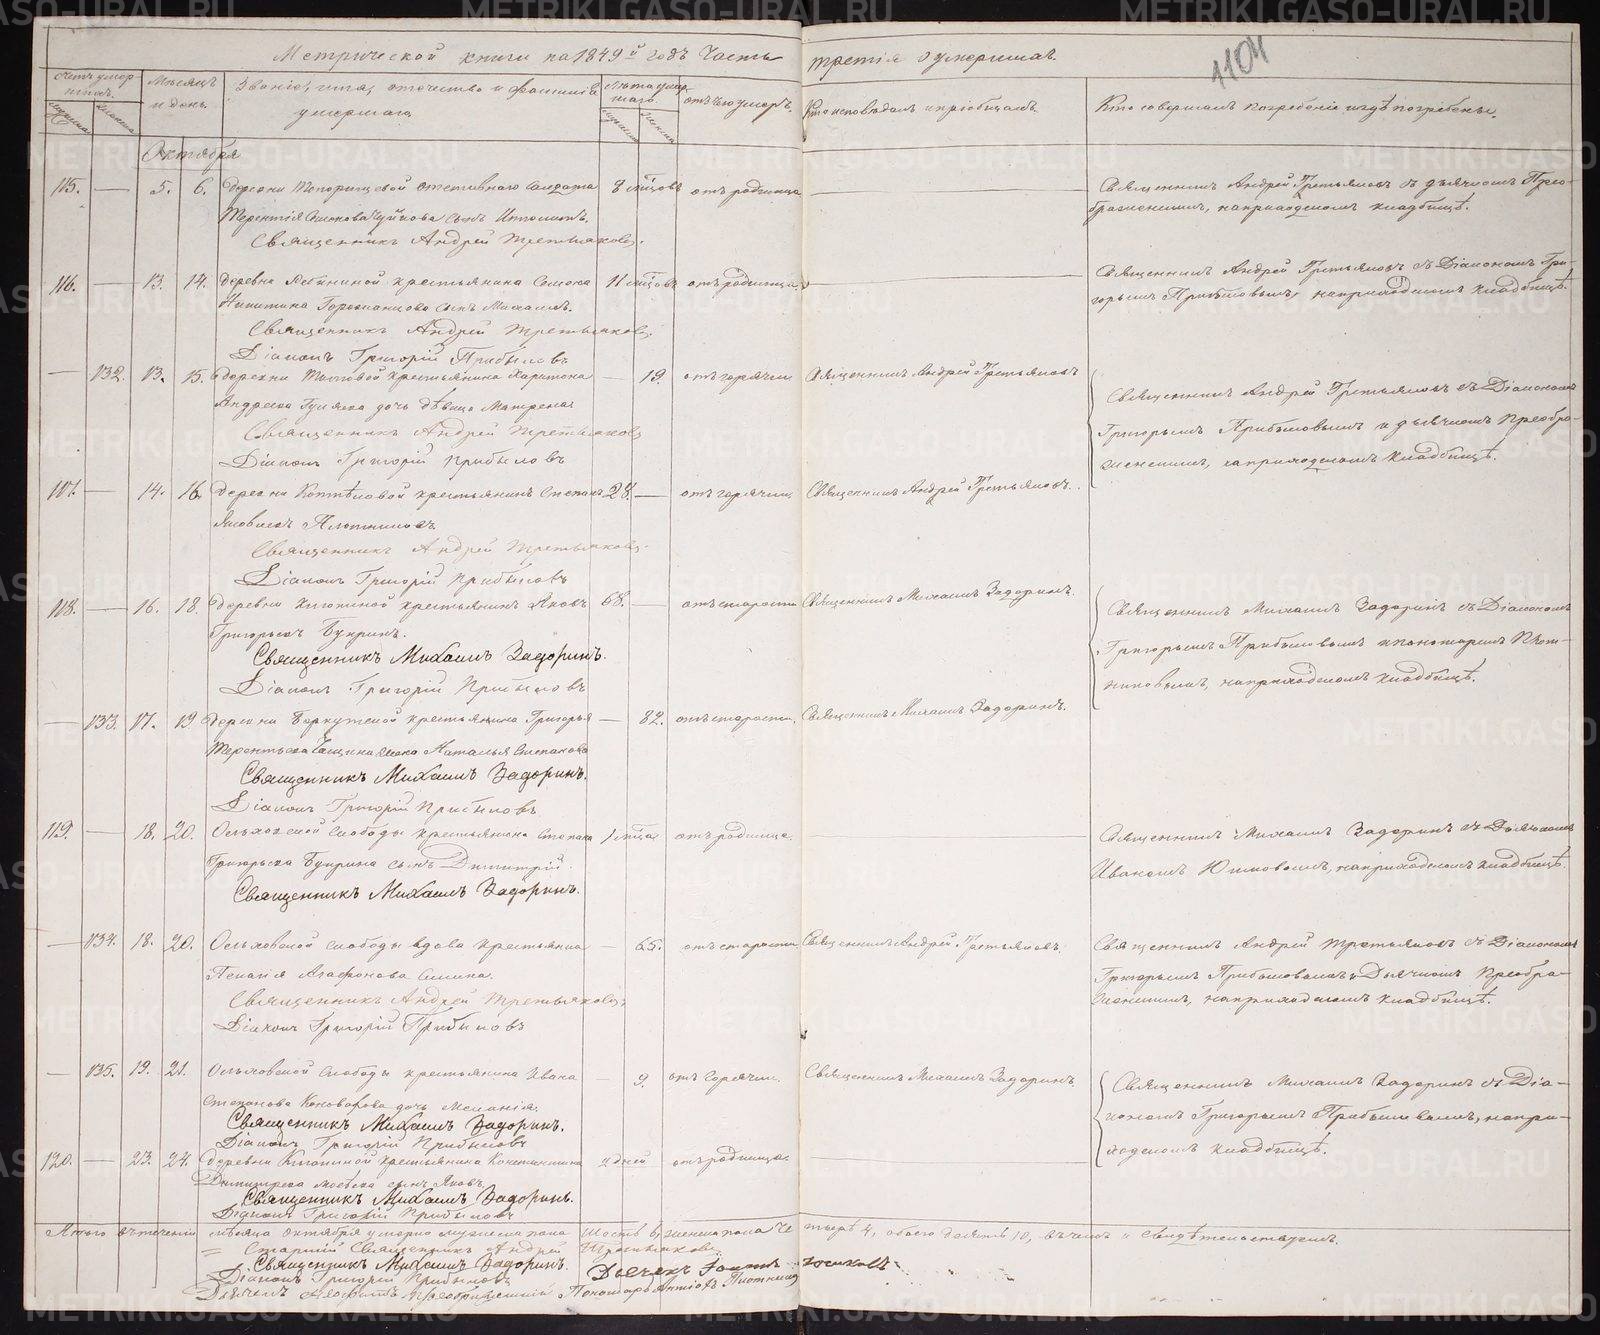 Метрической книги на 1849й годъ Часть третія о умершихъ.
1104
Счетъ умершихъ.
Мужеска
Женска
Мѣсяцъ и день.
Званіе, имя, отечество и фамилія умершаго
Лѣта умершаго.
Мужеска
Женска
отъ чего умеръ.
Кто исповѣдалъ и пріобщалъ.
Кто совершалъ погребеніе и гдѣ погребены.
Октября
115. — 5. 6. Деревни отставнаго Солдата 8 мѣсцовъ отъ родимца — Священникъ Андрей Третьяковъ съ дьячкомъ Прео-
Терентія сынъ Ипполитъ. браженскимъ, на приходскомъ кладбищѣ.
Священникъ Андрей Третьяковъ.
116. — 13. 14. Деревни крестьянина Семена 11 мѣсцовъ отъ родимца — Священникъ Андрей Третьяковъ съ Діакономъ Гри-
Никитина сынъ Михаилъ. горьемъ Прибыловымъ, на приходскомъ кладбищѣ.
Священникъ Андрей Третьяковъ.
Діаконъ Григорій Прибыловъ
— 132. 13. 15. Деревни крестьянина Харитона — 19. отъ горячки Священникъ Андрей Третьяковъ Священникъ Андрей Третьяковъ съ Діакономъ
Андреева Гуляева дочь дѣвица Матрена Григорьемъ Прибыловымъ и дьячкомъ Преобра-
Священникъ Андрей Третьяковъ женскимъ, на приходскомъ кладбищѣ.
Діаконъ Григорій Прибыловъ
117. — 14. 16. Деревни Коптѣловой крестьянинъ Степанъ 28. — отъ горячки Священникъ Андрей Третьяковъ.
Яковлевъ Плотниковъ
Священникъ Андрей Третьяковъ.
Діаконъ Григорій Прибыловъ
118. — 16. 18. Деревни крестьянинъ Яковъ 68. — отъ старости Священникъ Михаилъ Задоринъ. Священникъ Михаилъ Задоринъ съ Діакономъ
Григорьевъ Букринъ. Григорьемъ Прибыловымъ и пономаремъ Плот-
Священникъ Михаилъ Задоринъ. никовымъ, на приходскомъ кладбищѣ.
Діаконъ Григорій Прибыловъ
— 133. 17. 19. Деревни крестьянина Григорья — 82. отъ старости. Священникъ Михаилъ Задоринъ.
Терентьева жена Наталья Степанова
Священникъ Михаилъ Задоринъ.
Діаконъ Григорій Прибыловъ
119. — 18. 20. Ольховской слободы крестьянина Степана 1 мѣсца отъ родимца. — Священникъ Михаилъ Задоринъ съ Дьячкомъ
Григорьева Букрина сынъ Димитрій. Иваномъ на приходскомъ кладбищѣ.
Священникъ Михаилъ Задоринъ.
— 134. 18. 20. Ольховской слободы вдова крестьянка — 65. отъ старости Священникъ Андрей Третьяковъ. Священникъ Андрей Третьяковъ съ Діакономъ
Пелагія Агафонова Григорьемъ Прибыловымъ и Дьячкомъ Преобра-
Священникъ Андрей Третьяковъ. женскимъ, на приходскомъ кладбищѣ.
Діаконъ Григорій Прибыловъ
— 135. 19. 21. Ольховской слободы крестьянина Ивана — 9. отъ горячки. Священникъ Михаилъ Задоринъ. Священникъ Михаилъ Задоринъ съ Діа-
Степанова Коновалова дочь Меланія. кономъ Григорьемъ Прибыловымъ, на при-
Священникъ Михаилъ Задоринъ. ходскомъ кладбищѣ.
Діаконъ Григорій Прибыловъ
120. — 23. 24. Деревни крестьянина Константина дней отъ родимца. —
Димитрева сынъ Яковъ.
Священникъ Михаилъ Задоринъ.
Діаконъ Григорій Прибыловъ
Итого въ теченіи мѣсяца октября умерло мужеска пола Шесть 6, женска пола Четыре 4, обоего десять 10, въ чемъ и свидѣтельствуемъ.
Старшій Священникъ Андрей Третьяковъ.
Священникъ Михаилъ Задоринъ. Дьячекъ
Діаконъ Григорій Прибыловъ
Дьячекъ Преображенскій Пономарь Плотниковъ
METRIKI.GASO-URAL.RU